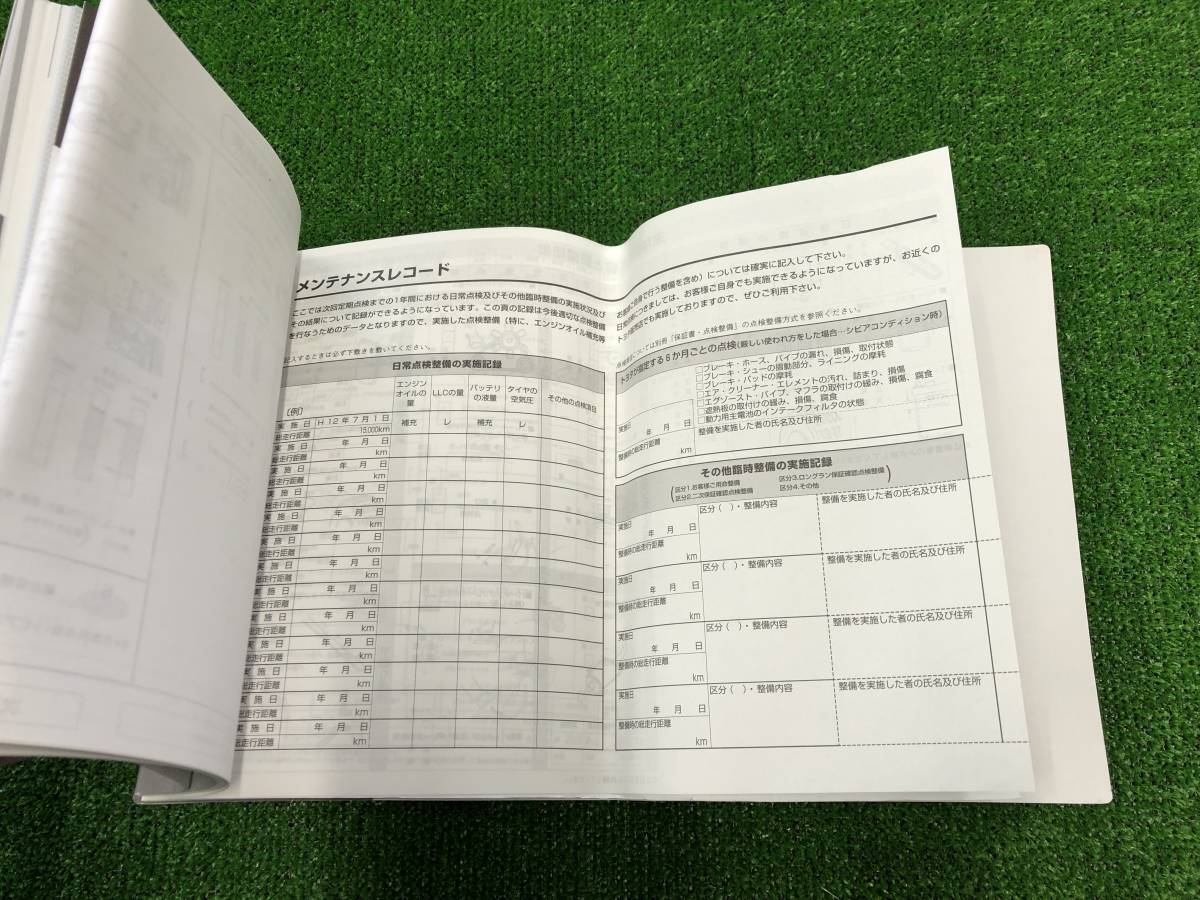 メンテナンスレコード
ここでは次回定期点検までの1年間における日常点検及びその他臨時整備の実施状況及び
その結果について記録ができるようになっています。この頁の記録は今後適切な点検整備
を行なうためのデータとなりますので、実施した点検整備（特に、エンジンオイル補充等
記入するときは必ず下敷きを敷いてください。
日常点検整備の実施記録
（例）
エンジンオイルの量
LLCの量
バッテリの液量
タイヤの空気圧
その他の点検項目
実施日 H12年7月1日 補充 レ 補充 レ
総走行距離 15,000km
実施日 年 月 日
総走行距離 km
実施日 年 月 日
総走行距離 km
実施日 年 月 日
総走行距離 km
実施日 年 月 日
総走行距離 km
実施日 年 月 日
総走行距離 km
実施日 年 月 日
総走行距離 km
実施日 年 月 日
総走行距離 km
実施日 年 月 日
総走行距離 km
実施日 年 月 日
総走行距離 km
実施日 年 月 日
総走行距離 km
実施日 年 月 日
総走行距離 km
実施日 年 月 日
総走行距離 km
お客様ご自身で行う整備を含め）については確実に記入して下さい。
日常点検につきましては、お客様ご自身でも実施できるようになっていますが、お近くの
トヨタ販売店でも実施しておりますので、ぜひご利用下さい。
点検整備については別冊「保証書・点検整備」の点検整備方式を参照ください。
トヨタが指定する6か月ごとの点検（厳しい使われ方をした場合…シビアコンディション時）
□ブレーキ・ホース、パイプの漏れ、損傷、取付状態
□ブレーキ・シューの摺動部分、ライニングの摩耗
□ブレーキ・パッドの摩耗
□エア・クリーナー・エレメントの汚れ、詰まり、損傷
□エグゾースト・パイプ、マフラの取付けの緩み、損傷、腐食
□遮熱板の取付けの緩み、損傷、腐食
□動力用主電池のインテークフィルタの状態
実施日
年 月 日
整備時の総走行距離
km
整備を実施した者の氏名及び住所
その他臨時整備の実施記録
（区分1.お客様ご用命整備 区分3.ロングラン保証確認点検整備
区分2.二次保証確認点検整備 区分4.その他）
実施日
年 月 日
整備時の総走行距離
km
区分（ ）・整備内容
整備を実施した者の氏名及び住所
実施日
年 月 日
整備時の総走行距離
km
区分（ ）・整備内容
整備を実施した者の氏名及び住所
実施日
年 月 日
整備時の総走行距離
km
区分（ ）・整備内容
整備を実施した者の氏名及び住所
実施日
年 月 日
整備時の総走行距離
km
区分（ ）・整備内容
整備を実施した者の氏名及び住所